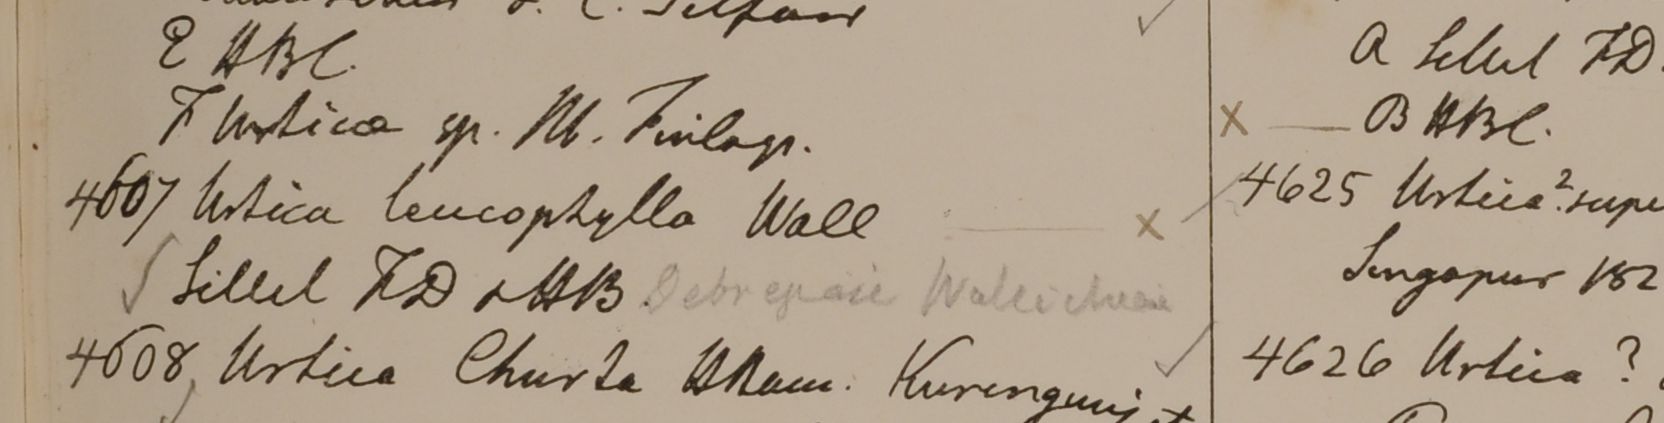 E HBC.
F Urtica sp. M. Finlays.
4607 Urtica leucophylla Wall x
Sillet FD & HB. Debregeasie Wallichiana
4608, Urtica Churta HHam.
A Sillet FD.
x — B HBC.
4625 Urtica?
Singapur 182
4626 Urtica ?